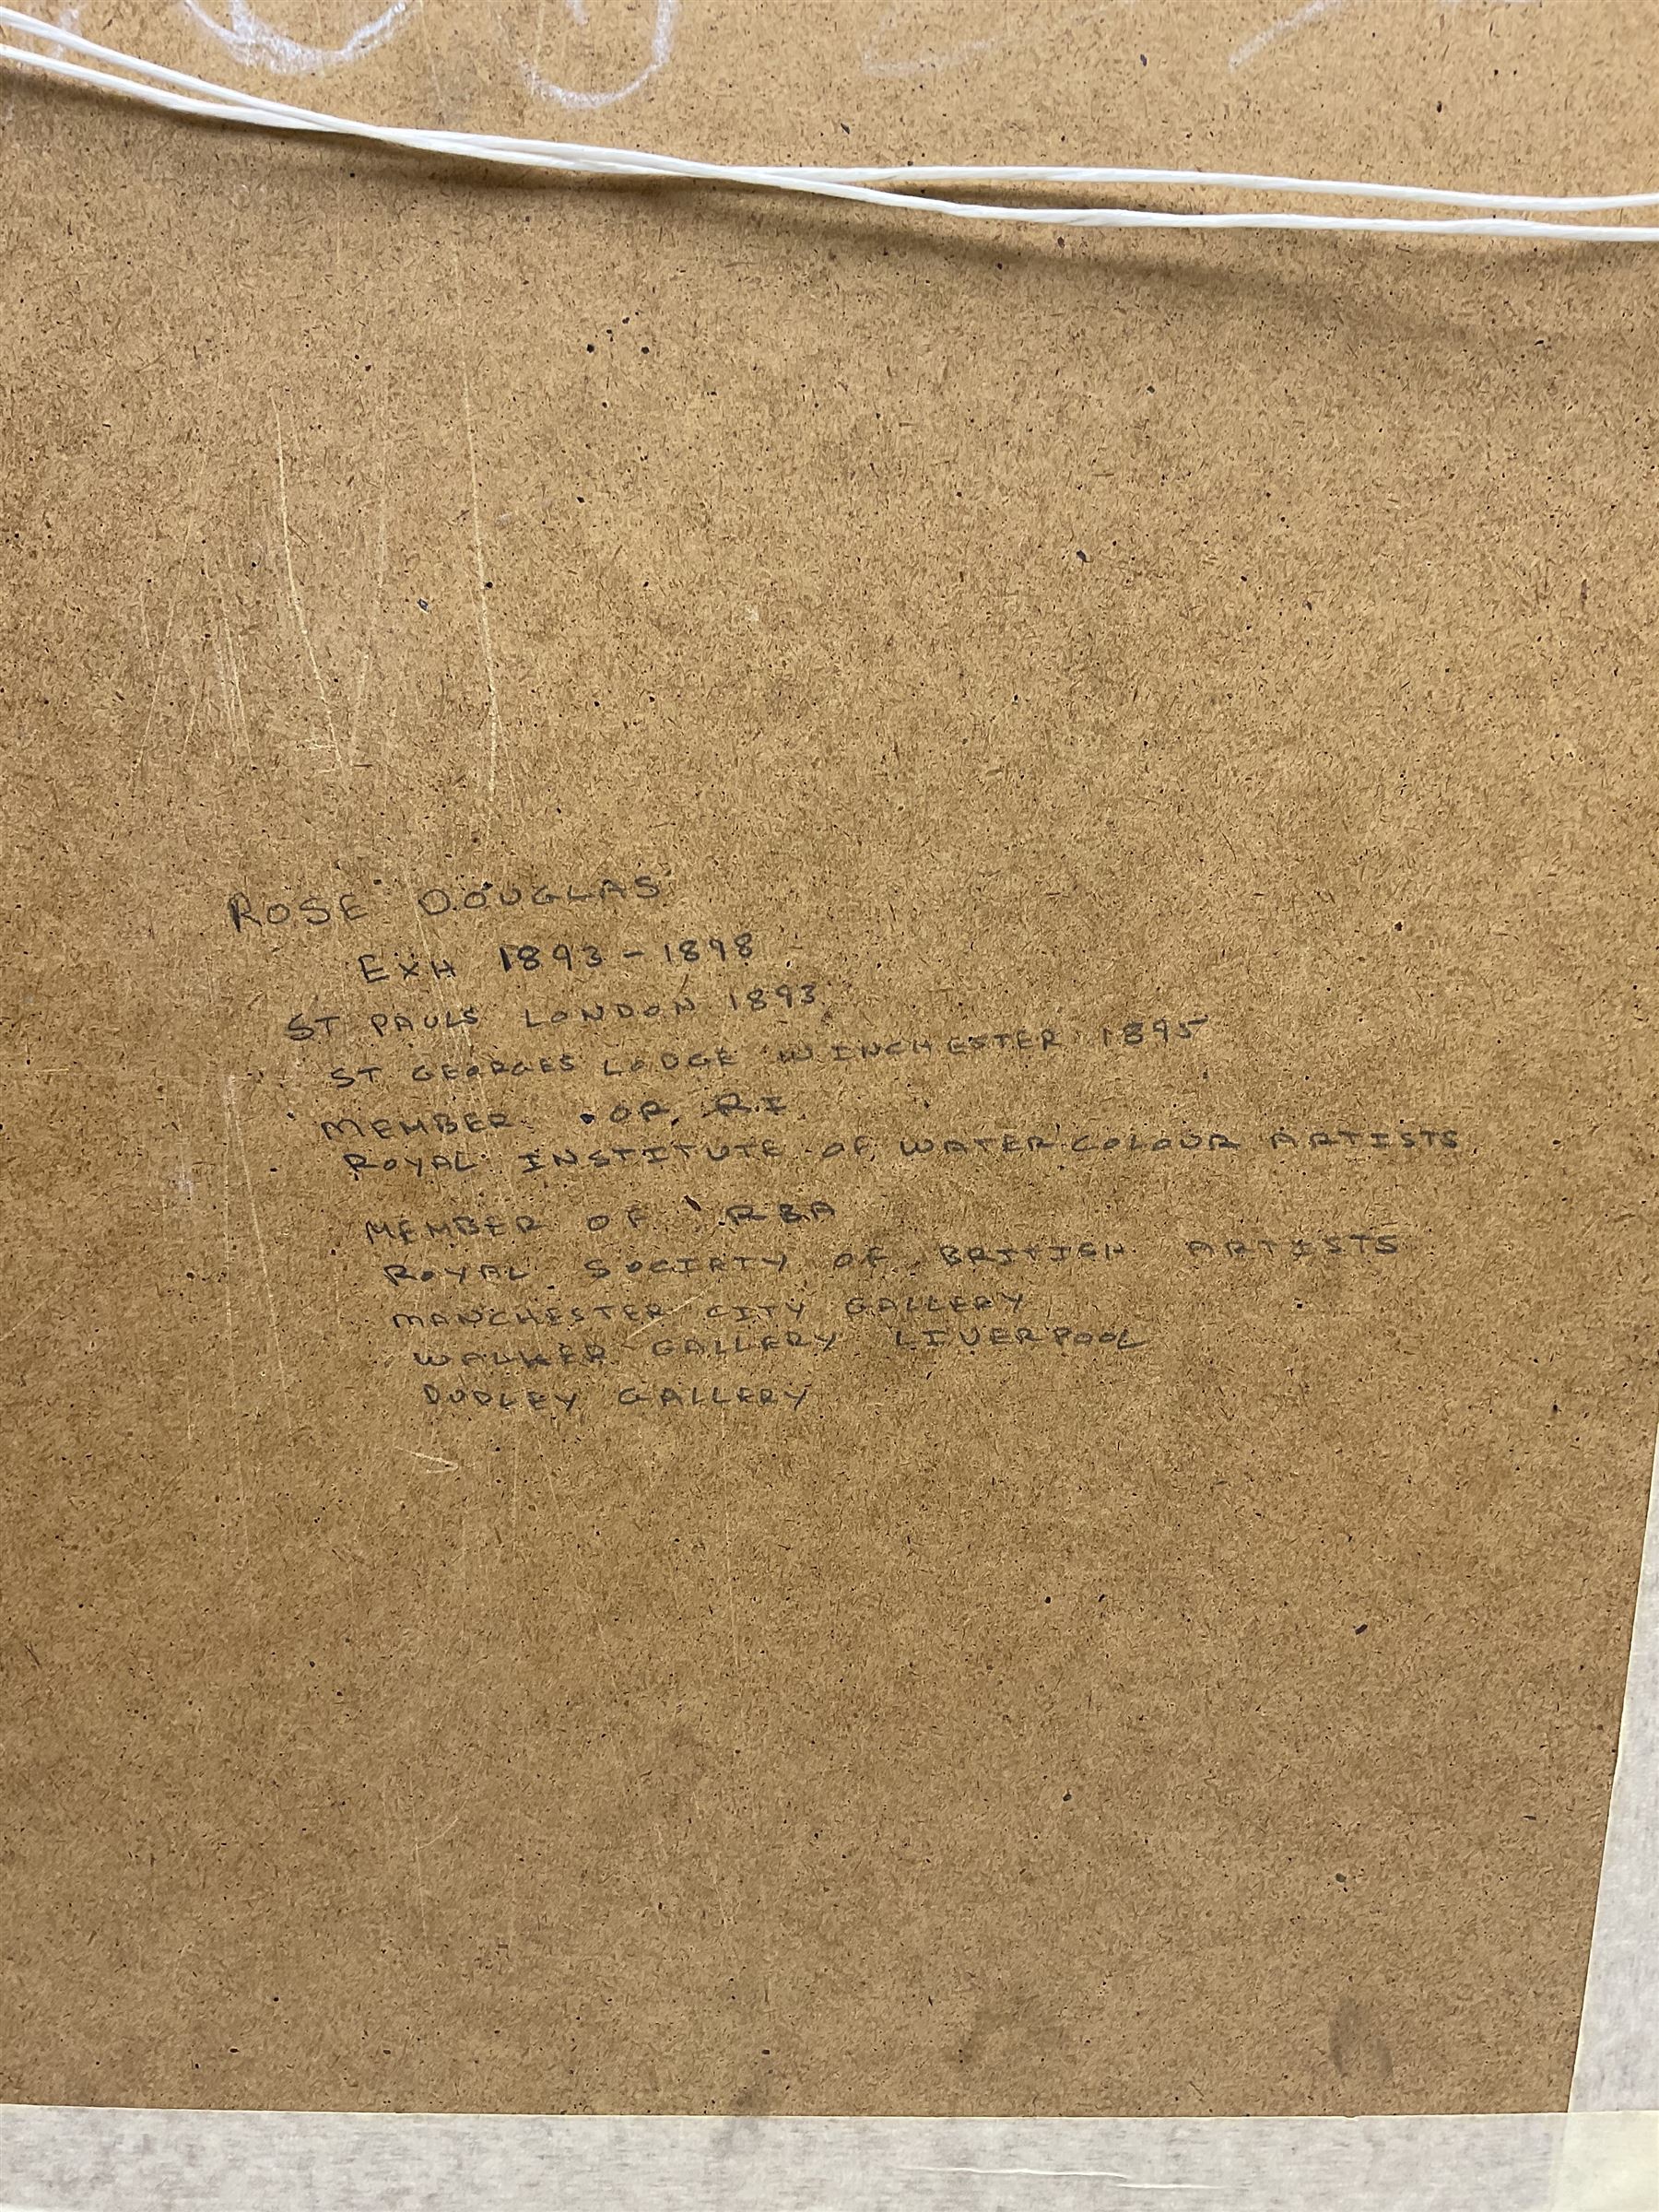 ROSE DOUGLAS
EXH 1893-1898
ST PAULS LONDON 1893
ST GEORGES LODGE WINCHESTER 1895
MEMBER OF RI
ROYAL INSTITUTE OF WATERCOLOUR ARTISTS
MEMBER OF RBA
ROYAL SOCIETY OF BRITISH ARTISTS
MANCHESTER CITY GALLERY
WALKER GALLERY LIVERPOOL
DUDLEY GALLERY